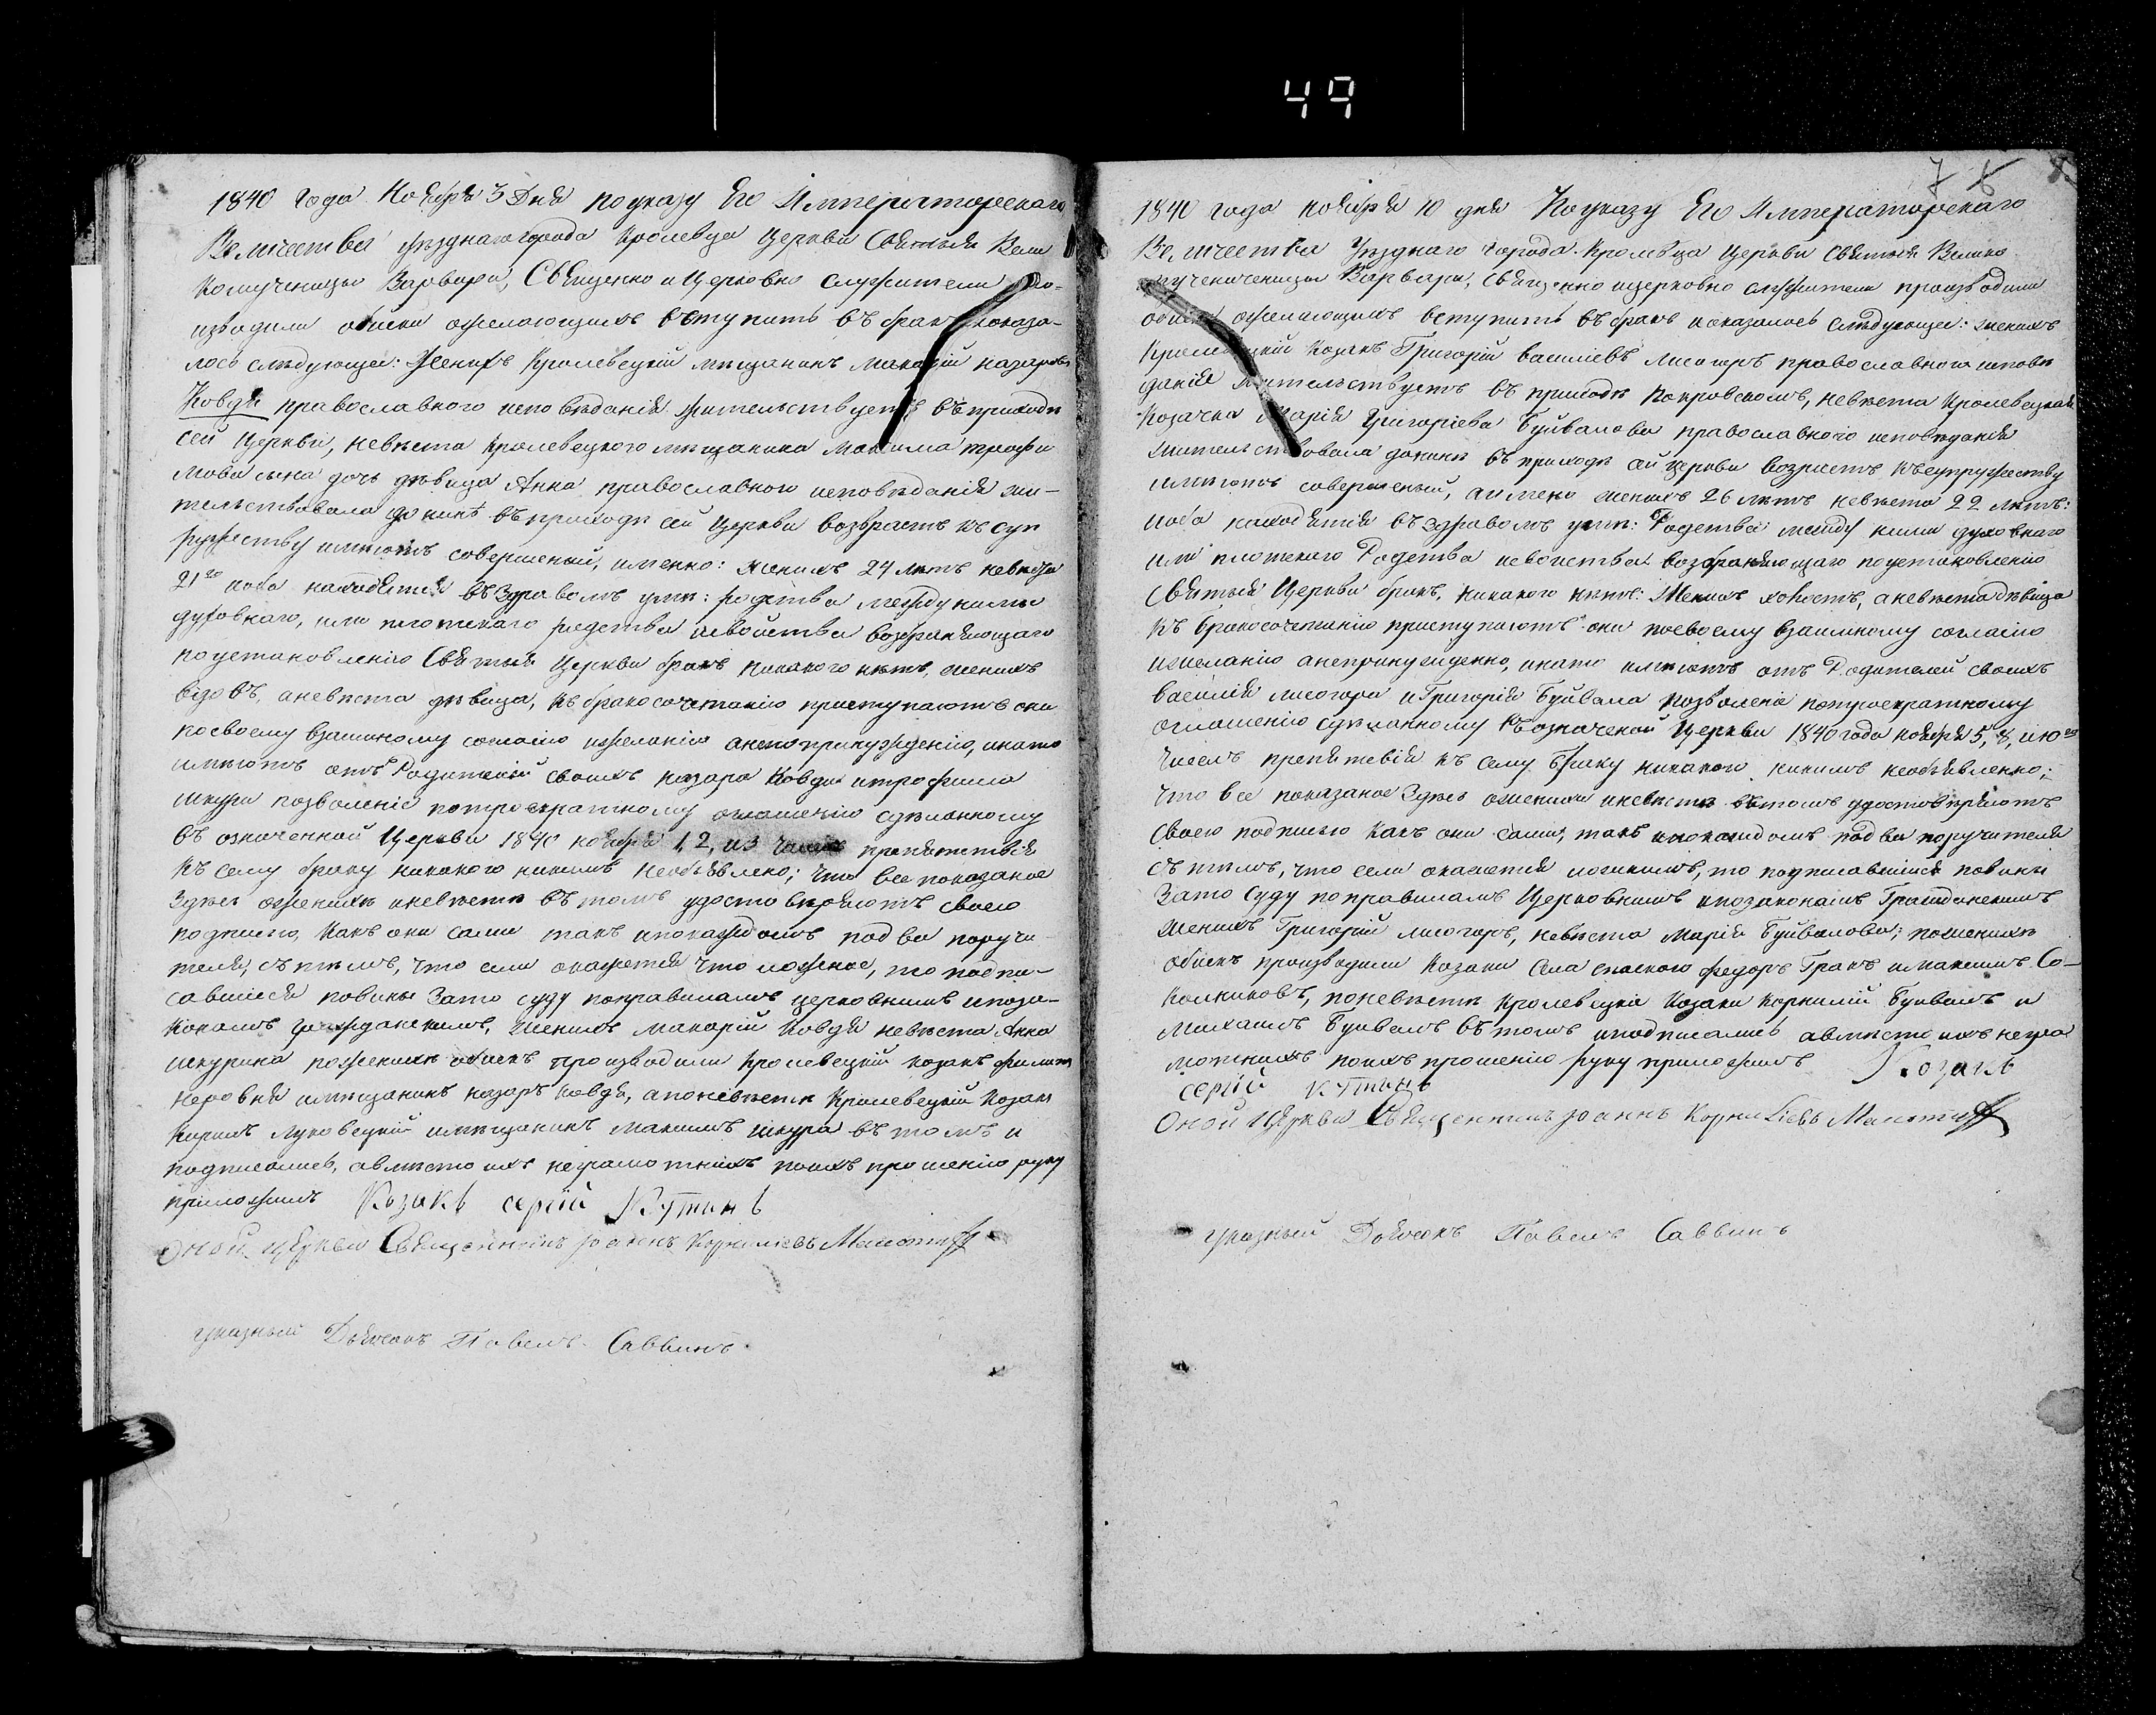 49
1840 года Ноября 3 Дня по указу Его Императорскаго
Величества уѣзднаго города Кролевца Церкви Святыя Вели
комученицы Варвары, Священно и Церковно служители про-
изводили обыски желающимъ вступить въ бракъ и оказа-
лось слѣдующее: Женихъ Кролевецкій мѣщанинъ Макарій Назаровъ
Ковдя православного исповѣданія жительствуетъ въ приходѣ
сей Церкви, невѣста Кролевецкого мѣщанина Максима Трофи
мова сына дочь дѣвица Анна православного исповѣданія жи-
тельствовала до нинѣ въ приходѣ сей Церкви возврастъ къ суп
ружеству имѣютъ совершеный, именно: женихъ 24 лѣтъ невѣста
21го иоба находятся въ здравомъ умѣ: родства между ними
духовнаго, или плотского родства исвойства возбраняющаго
по установленію Святыя Церкви бракъ никакого нѣтъ, женихъ
вдовъ, а невѣста дѣвица, къ бракосочетанію приступаютъ они
по своему взаимному согласію ижеланію а непринужденію, инато
имѣютъ отъ Родителей своихъ Назара Ковди итрофима
шкури позволеніе потроекратному оглашенію сдѣланному
въ означенной Церкви 1840 ноября 1, 2, и 3 чиселъ препятствія
къ сему браку никакого никимъ необъявлено; что все показаное
здѣсь о женихѣ иневѣсте въ томъ удостовѣряютъ своею
подписью, Какъ они сами такъ ипокаждомъ под ва поручи
теля, съ тѣмъ, что если окажется что ложное, то подпи-
савшіеся повины Зато суду поправиламъ церковнымъ ипоза-
конамъ гражданскимъ, Женихъ Макарій Ковдя невѣста Анна
шкурина по женихѣ обыскъ производили Кролевецкій козакъ филипъ
неровня имѣщанинъ назаръ Ковдя, апоневѣсте Кролевецкій Козакъ
Кирилъ луковецкій имѣщанинъ Максимъ шкура въ томъ и
подписались, авмѣсто ихъ неграмотнихъ поихъ прошенію руку
приложилъ Козакъ сергій Кутинъ
Оной Церкви Священникъ Іоаннъ Корниліевъ
указный Дьячокъ Павелъ Саввинъ
7 6 8
1840 года ноября 10 дня По указу Его Императорскаго
Величества Уѣзднаго города Кролевца Церкви Святыя Велико
мученичецы Варвари, Священно ицерковно служители производили
обыскъ желающимъ вступить въ бракъ иоказалось слѣдующее: женихъ
Кролевецкій Козакъ Григорій Василіевъ лисогоръ православного исповѣ
данія жительствуетъ въ приходѣ Покровскомъ, невѣста Кролевецкая
Козачка Марія Григоріева Буйвалова православного исповѣданія
жительствовала донинѣ въ приходѣ сей Церкви возрастъ къ супружеству
имѣютъ совершеный, аимено женихъ 26 лѣтъ невѣста 22 лѣтъ:
иоба находятся въ здравомъ умѣ: Родства между ними духовнаго
или плотскаго Родства исвоиства возбраняющаго поустановленію
Святыя Церкви бракъ, никакого нѣтъ: Женихъ холостъ, аневѣста дѣвица
Къ бракосочетанію приступаютъ они посвоему взаимному согласію
ижеланію анепринужденно, инато имѣютъ отъ Родителей своихъ
василія лисогора иГригорія Буйвала позволеніе потроекратному
оглашенію сдѣланному въ означеной Церкви 1840 года ноября 5, 8, и 10го
чиселъ препятсвія къ сему браку никакого никимъ необъявленно;
что все показаное здѣсь оженихѣ иневѣсте вътомъ удостовѣряютъ
своею подписью какъ они сами, такъ ипокаждомъ под ва поручителя
съ тѣмъ, что если окажется ложнимъ, то подписавшійся повины
Зато суду поправиламъ Церковнымъ ипозаконамъ Гражданскимъ
Женихъ Григорій лисогоръ, невѣста Марія Буйвалова; поженихѣ
обыскъ производили Козаки Села спаского федоръ Гракъ имаксимъ Со-
колниковъ, поневѣсте Кролевецкіе Козаки Корнилій Буйвалъ и
Михаилъ Буйвалъ въ томъ иподписались авмѣсто ихъ негра
мотнихъ поихъ прошенію руку приложилъ Козакъ
сергій Кутинъ
Оной Церкви Священникъ Іоаннъ Корниліевъ
указный Дьячокъ Павелъ Саввинъ